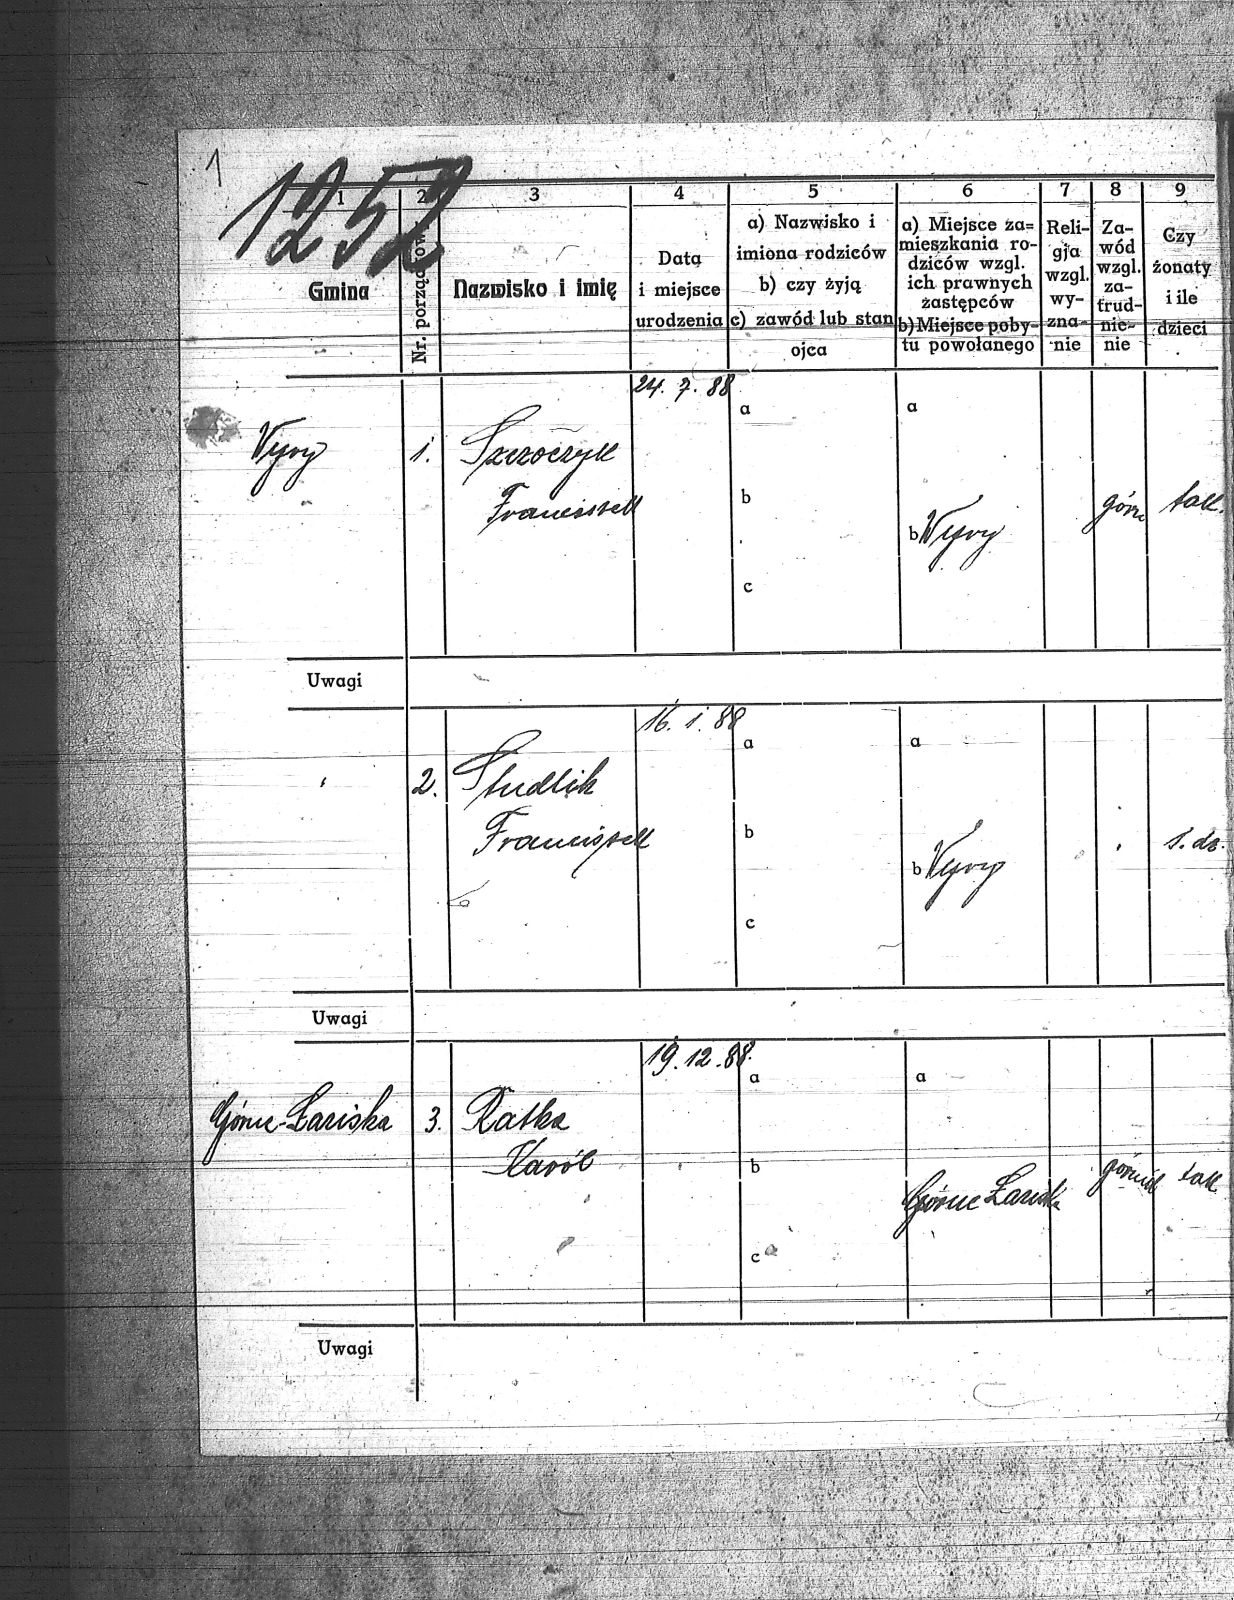 1
1252
1
2
3
4
5
6
7
8
9
Gmina
Nr. porządkow
Nazwisko i imię
Data
i miejsce
urodzenia
a) Nazwisko i
imiona rodziców
b) czy żyją
c) zawód lub stan
ojca
a) Miejsce za=
mieszkania ro-
dziców wzgl.
ich prawnych
zastępców
b) Miejsce poby-
tu powołanego
Reli-
gja
wzgl.
wy-
zna-
nie
Za-
wód
wzgl.
za-
trud-
nie-
nie
Czy
żonaty
i ile
dzieci
Wyry
1.
Franciszek
24. 7. 88
a
b
c
a
b Wyry
górn
tak.
Uwagi
2.
Studlik
Franciszek
16. 1. 88
a
b
c
a
b Wyry
1. dz.
Uwagi
Górne-Łaziska
3.
Ratka
Karól
19. 12. 88.
a
b
c
a
Górne Łaziska
górnik
tak
Uwagi